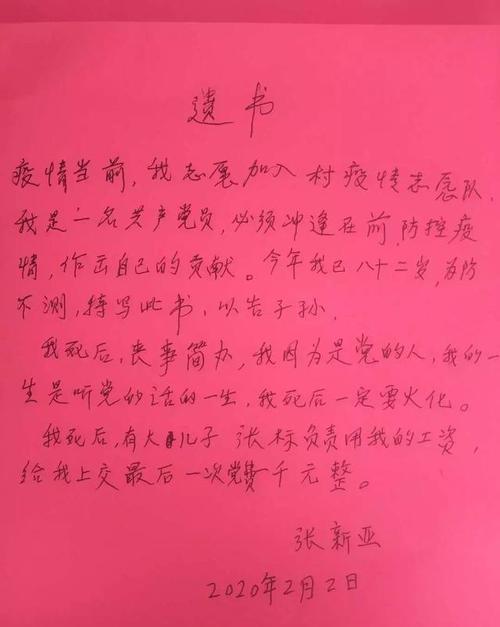 遗书
疫情当前,我志愿加入村疫情志愿队,
我是一名共产党员,必须冲逢在前,防控疫
情,作出自己的贡献。今年我已八十二岁,为防
不测,特写此书,以告子孙,
我死后,丧事简办,我因为是党的人,我的一
生是听党的话的一生,我死后一定要火化。
我死后,有大儿子张标负责用我的工资,
给我上交最后一次党费千元整。
张新亚
2020年2月2日